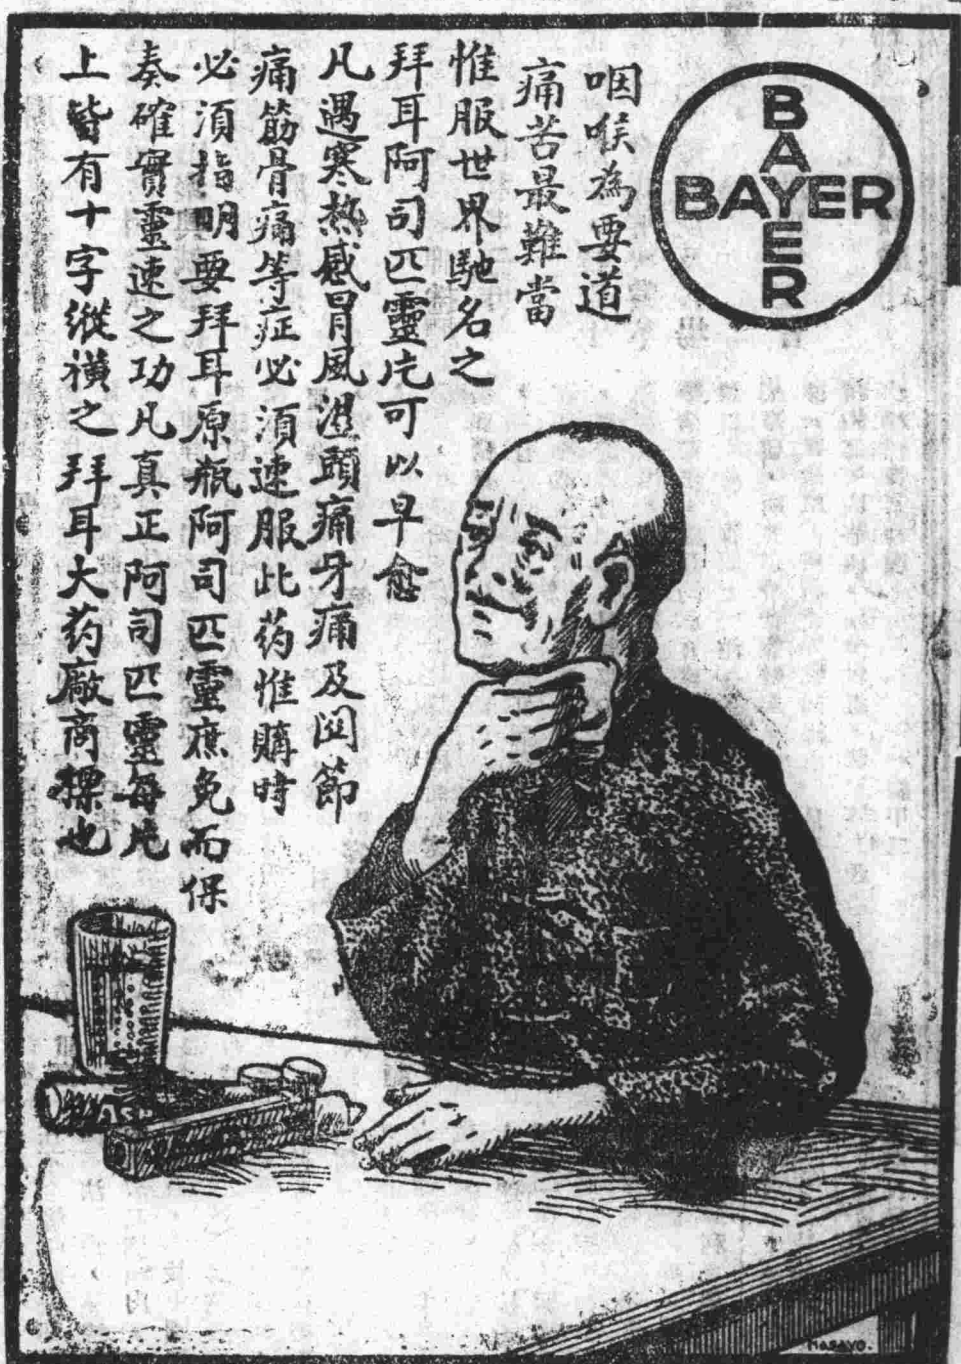 BAYER
BAYER
咽喉為要道
痛苦最難當
惟服世界馳名之
拜耳阿司匹靈片可以早愈
凡遇寒热感冒風濕頭痛牙痛及関節
痛筋骨痛等症必須速服此药惟購時
必須指明要拜耳原瓶阿司匹靈庶免而保
奏確實靈速之功凡真正阿司匹靈每片
上皆有十字縱橫之拜耳大药廠商標也
MASAYO.